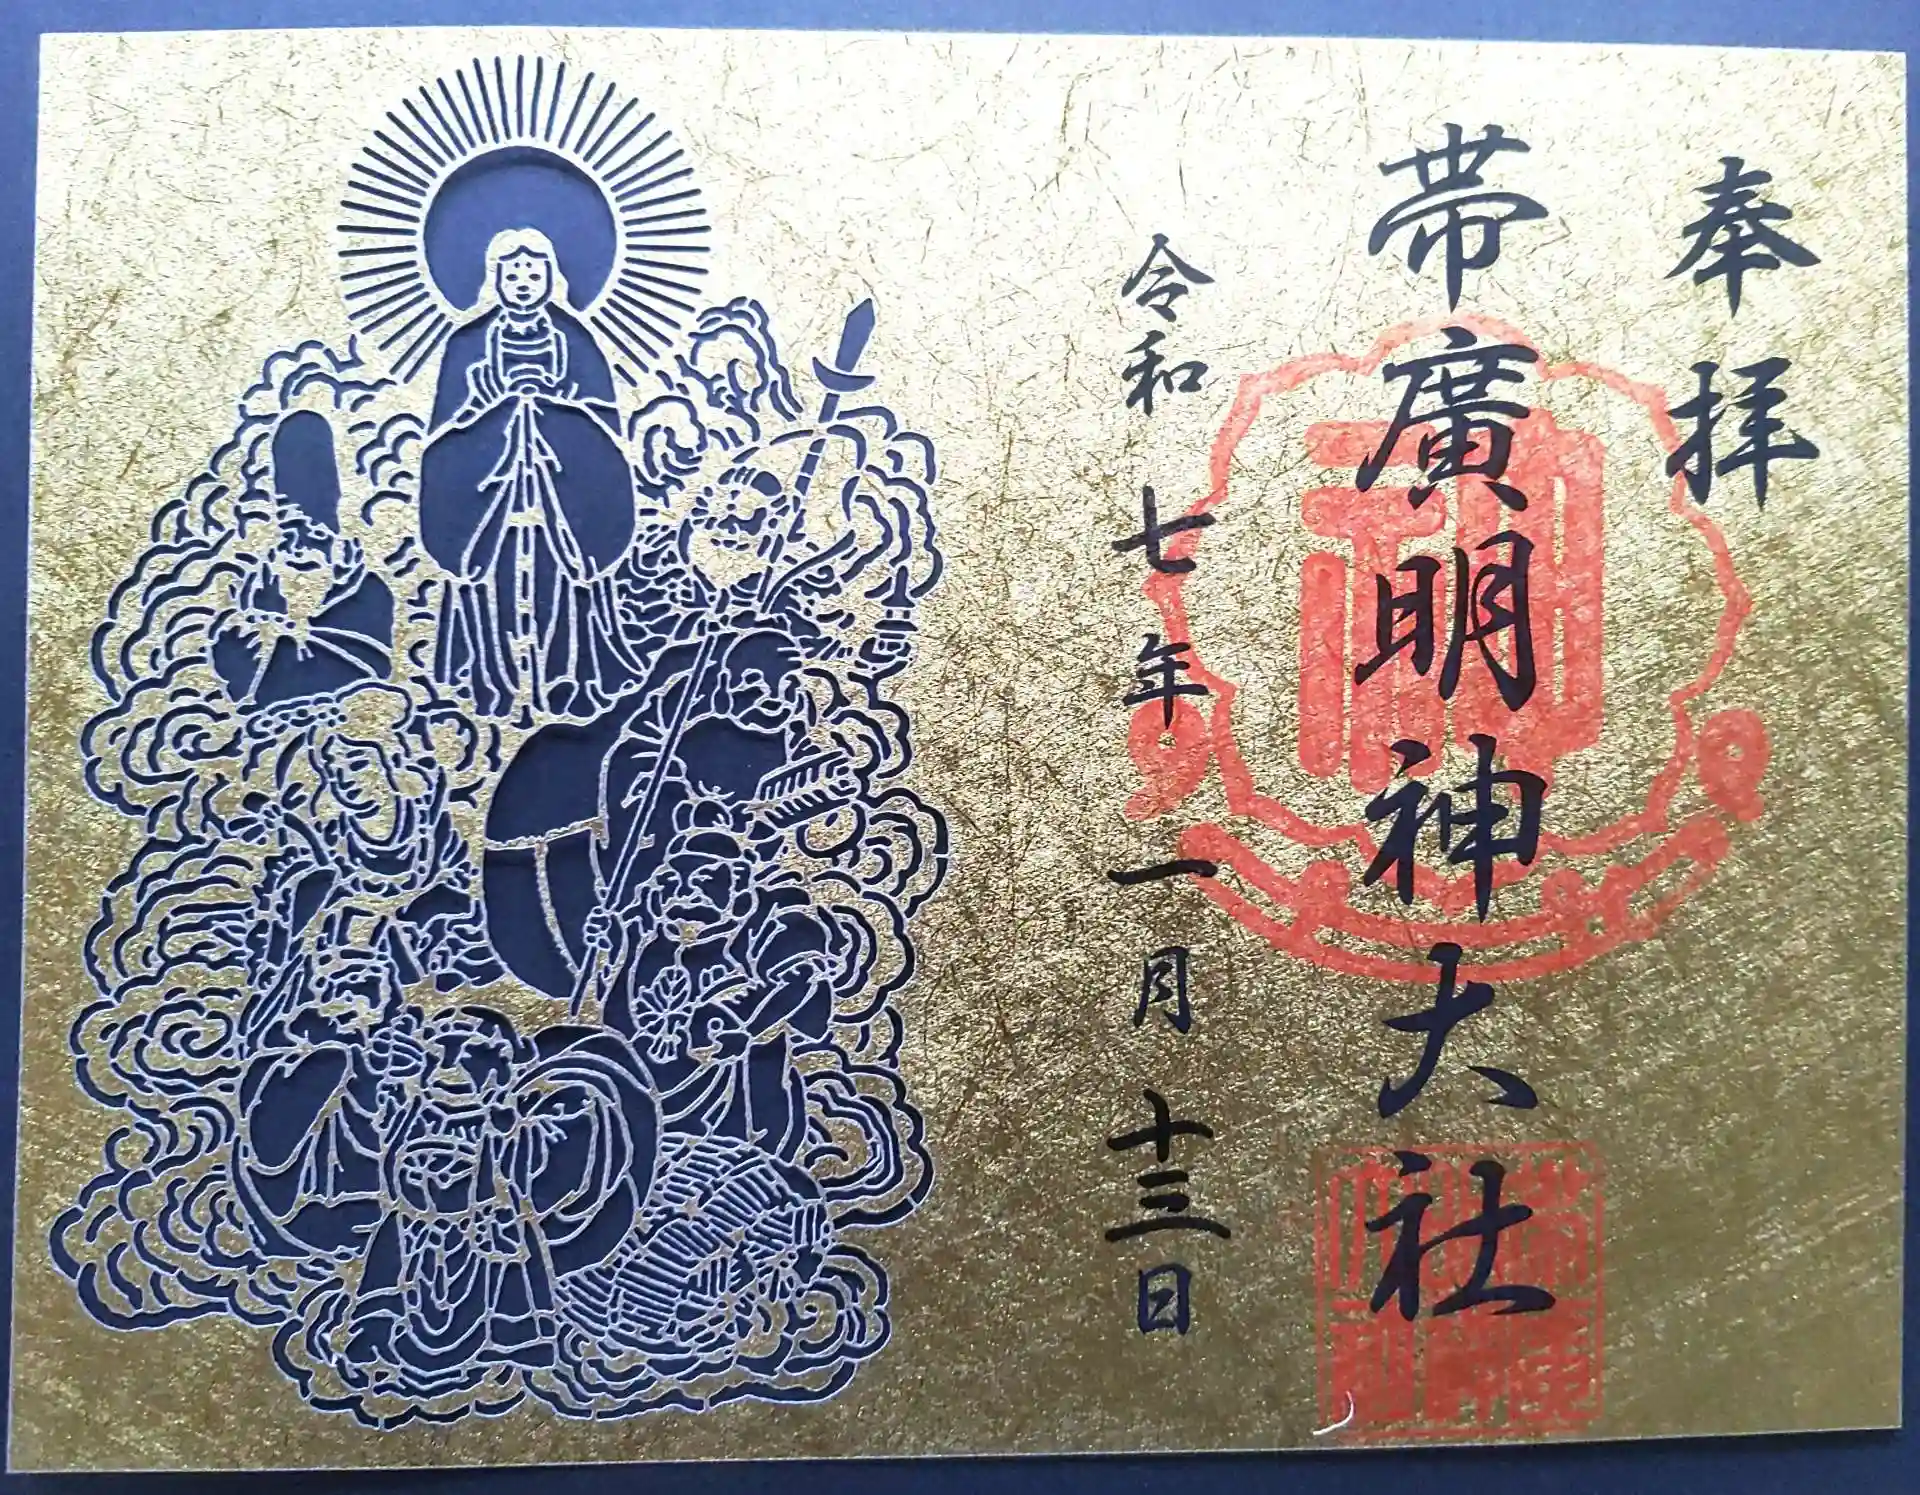 奉拝
帯廣明神大社
令和七年一月十三日
神